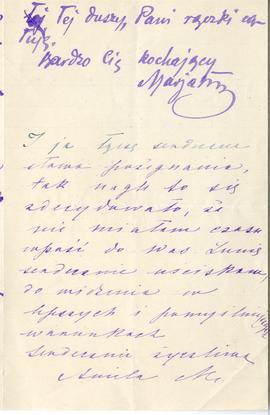 Tej duszy, Pani rączki
Bardzo Cię kochający
Marjan
I ja ślę serdeczne
słowa pożegnania,
tak nagle to się
zdecydowało, że
nie miałam czasu
wpaść do Was
serdecznie uściskam,
do widzenia w
lepszych i pomyślniejszych
warunkach
serdecznie życzliwa
Aniela